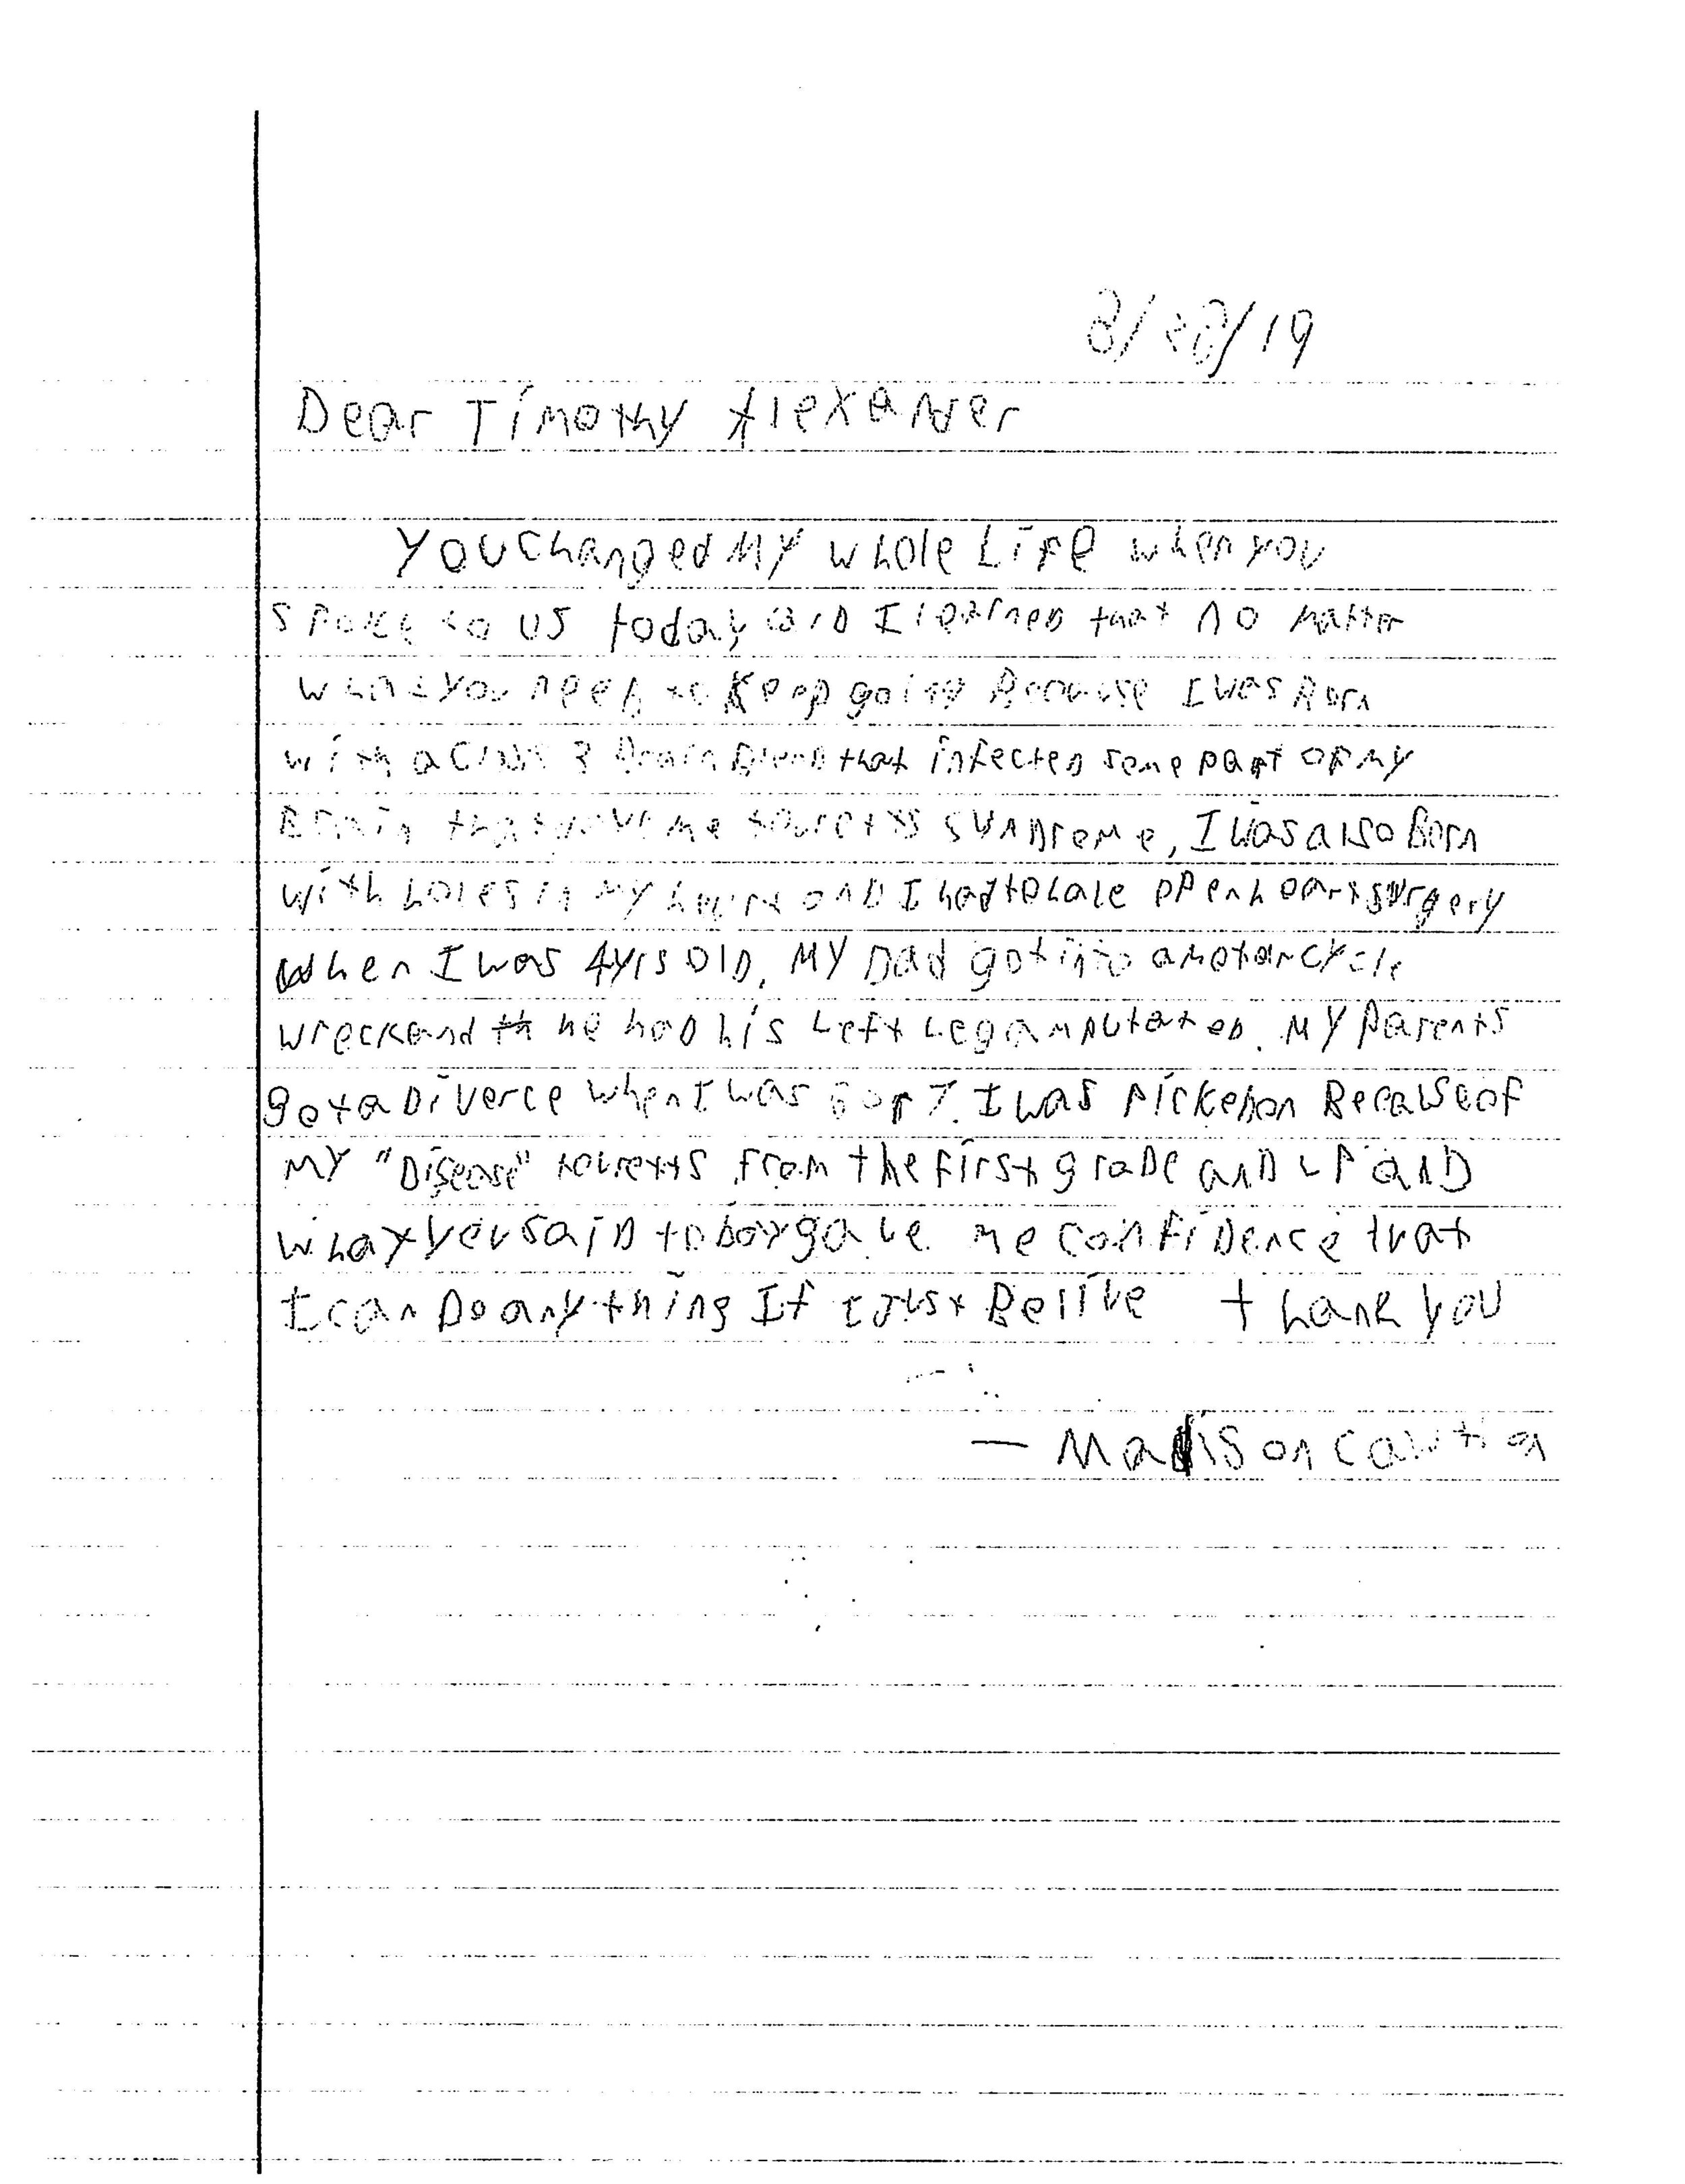 8/28/19
Dear Timothy Alexander
You changed My whole Life when you
spoke to us today and I learned that no matter
what you need to keep going Because I was Born
with a Class 3 Brain Bleed that infected some part of My
Brain that gave me touretts syndreme, I was also Born
with holes in my heart and I had to have oppen heart surgery
when I was 4yrs old. My Dad got into a motorcycle
wreck and he had his Left Leg amputated. My parents
got a Diverce when I was 6 or 7. I was Picked on Because of
My "Disease" touretts from the first grade and up and
what you said today gave me confidence that
I can Do anything If I Just Belive thank you
— Madison